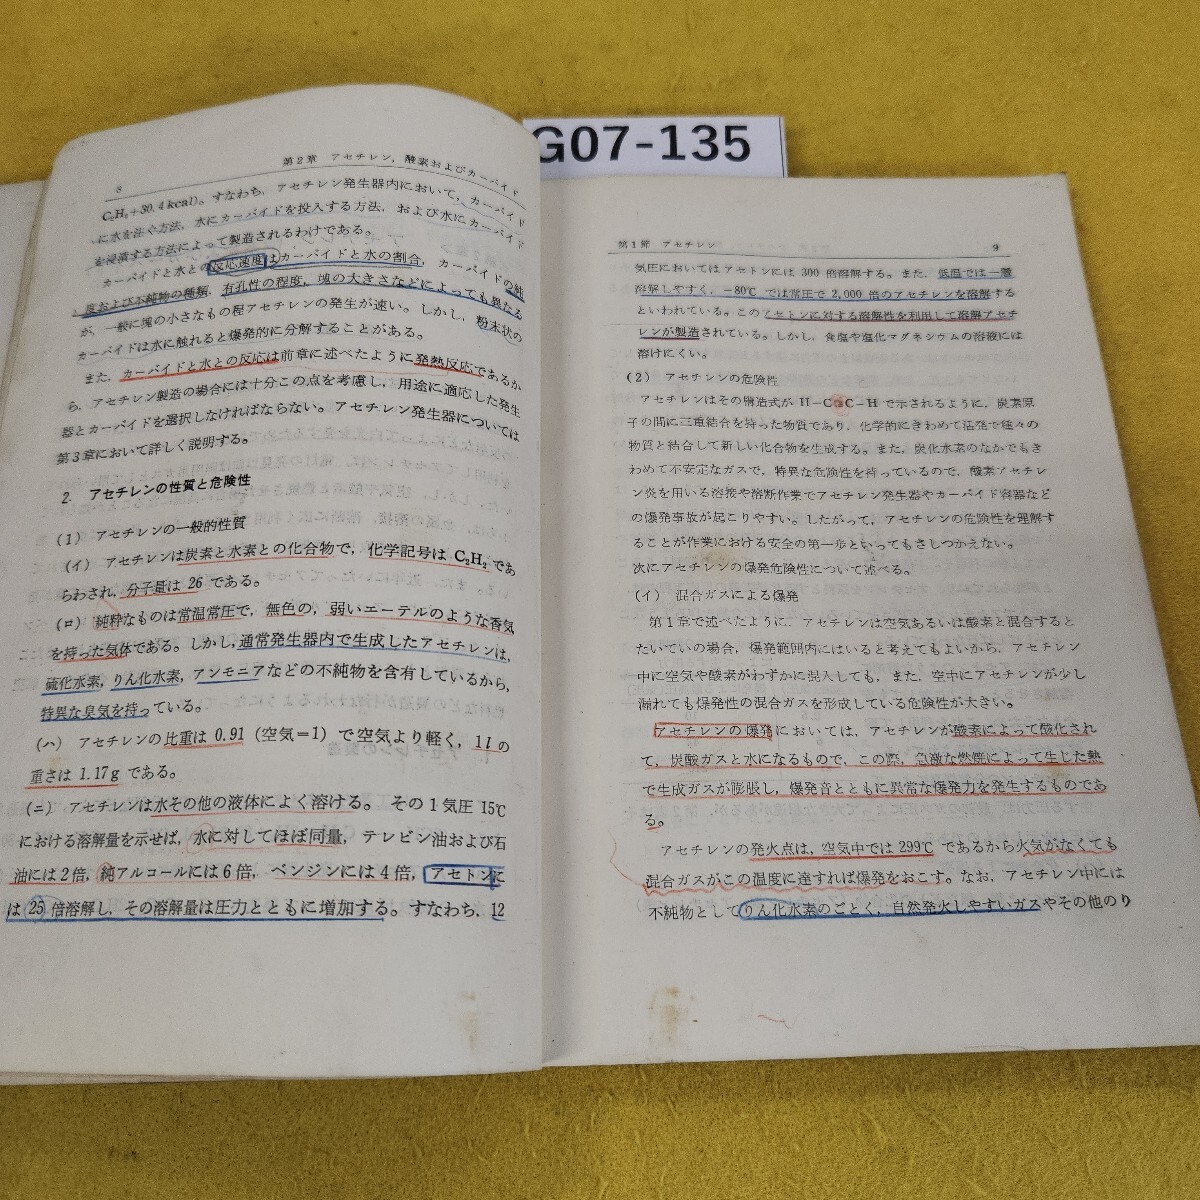 G07-135
8
第2章 アセチレン，酸素およびカーバイド
C₂H₂+30.4kcal)。すなわち，アセチレン発生器内において，カーバイド
に水を注ぐ方法，水にカーバイドを投入する方法，および水にカーバイド
を浸漬する方法によって製造されるわけである。
カーバイドと水との反応速度はカーバイドと水の割合，カーバイドの純
度および不純物の種類，有孔性の程度，塊の大きさなどによっても異なる
が，一般に塊の小さなもの程アセチレンの発生が速い。しかし，粉末状の
カーバイドは水に触れると爆発的に分解することがある。
また，カーバイドと水との反応は前章に述べたように発熱反応であるか
ら，アセチレン製造の場合には十分この点を考慮し，用途に適応した発生
器とカーバイドを選択しなければならない。アセチレン発生器については
第3章において詳しく説明する。
2. アセチレンの性質と危険性
(1) アセチレンの一般的性質
(イ) アセチレンは炭素と水素との化合物で，化学記号は C₂H₂ であ
らわされ，分子量は 26 である。
(ロ) 純粋なものは常温常圧で，無色の，弱いエーテルのような香気
を持った気体である。しかし，通常発生器内で生成したアセチレンは，
硫化水素，りん化水素，アンモニアなどの不純物を含有しているから，
特異な臭気を持っている。
(ハ) アセチレンの比重は 0.91 (空気=1) で空気より軽く，1l の
重さは 1.17g である。
(ニ) アセチレンは水その他の液体によく溶ける。その1気圧 15℃
における溶解量を示せば，水に対してほぼ同量，テレビン油および石
油には2倍，純アルコールには6倍，ベンジンには4倍，アセトンに
は 25 倍溶解し，その溶解量は圧力とともに増加する。すなわち，12
第1節 アセチレン
9
気圧においてはアセトンには 300 倍溶解する。また，低温では一層
溶解しやすく，−80℃ では常圧で 2,000 倍のアセチレンを溶解する
といわれている。このアセトンに対する溶解性を利用して溶解アセチ
レンが製造されている。しかし，食塩や塩化マグネシウムの溶液には
溶けにくい。
(2) アセチレンの危険性
アセチレンはその構造式が H−C≡C−H で示されるように，炭素原
子の間に三重結合を持った物質であり，化学的にきわめて活発で種々の
物質と結合して新しい化合物を生成する。また，炭化水素のなかでもき
わめて不安定なガスで，特異な危険性を持っているので，酸素アセチレ
ン炎を用いる溶接や溶断作業でアセチレン発生器やカーバイド容器など
の爆発事故が起こりやすい。したがって，アセチレンの危険性を理解す
ることが作業における安全の第一歩といってもさしつかえない。
次にアセチレンの爆発危険性について述べる。
(イ) 混合ガスによる爆発
第1章で述べたように，アセチレンは空気あるいは酸素と混合すると
たいていの場合，爆発範囲内にはいると考えてもよいから，アセチレン
中に空気や酸素がわずかに混入しても，また，空中にアセチレンが少し
漏れても爆発性の混合ガスを形成している危険性が大きい。
アセチレンの爆発においては，アセチレンが酸素によって酸化され
て，炭酸ガスと水になるもので，この際，急激な燃焼によって生じた熱
で生成ガスが膨張し，爆発音とともに異常な爆発力を発生するものであ
る。
アセチレンの発火点は，空気中では 299℃ であるから火気がなくても
混合ガスがこの温度に達すれば爆発をおこす。なお，アセチレン中には
不純物としてりん化水素のごとく，自然発火しやすいガスやその他のり